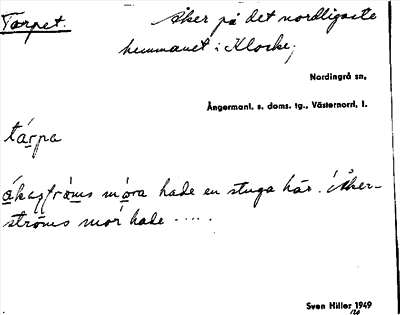 Torpet. Åker på det nordligaste
hemmanet i Klocke;
Nordingrå sn,
Ångermanl. s. doms. tg., Västernorrl. l.
tárpa
ákaʃtrøms móra hade en stuga här. 'Åker-
ströms mor' hade .....
Sven Hiller 1949